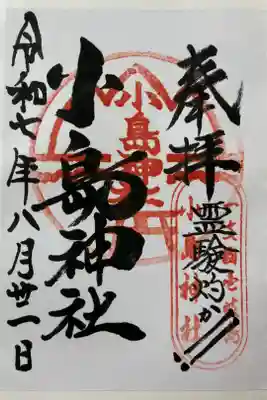 奉拝
霊験灼か!!
小島神社
小島神社
令和七年八月卅一日